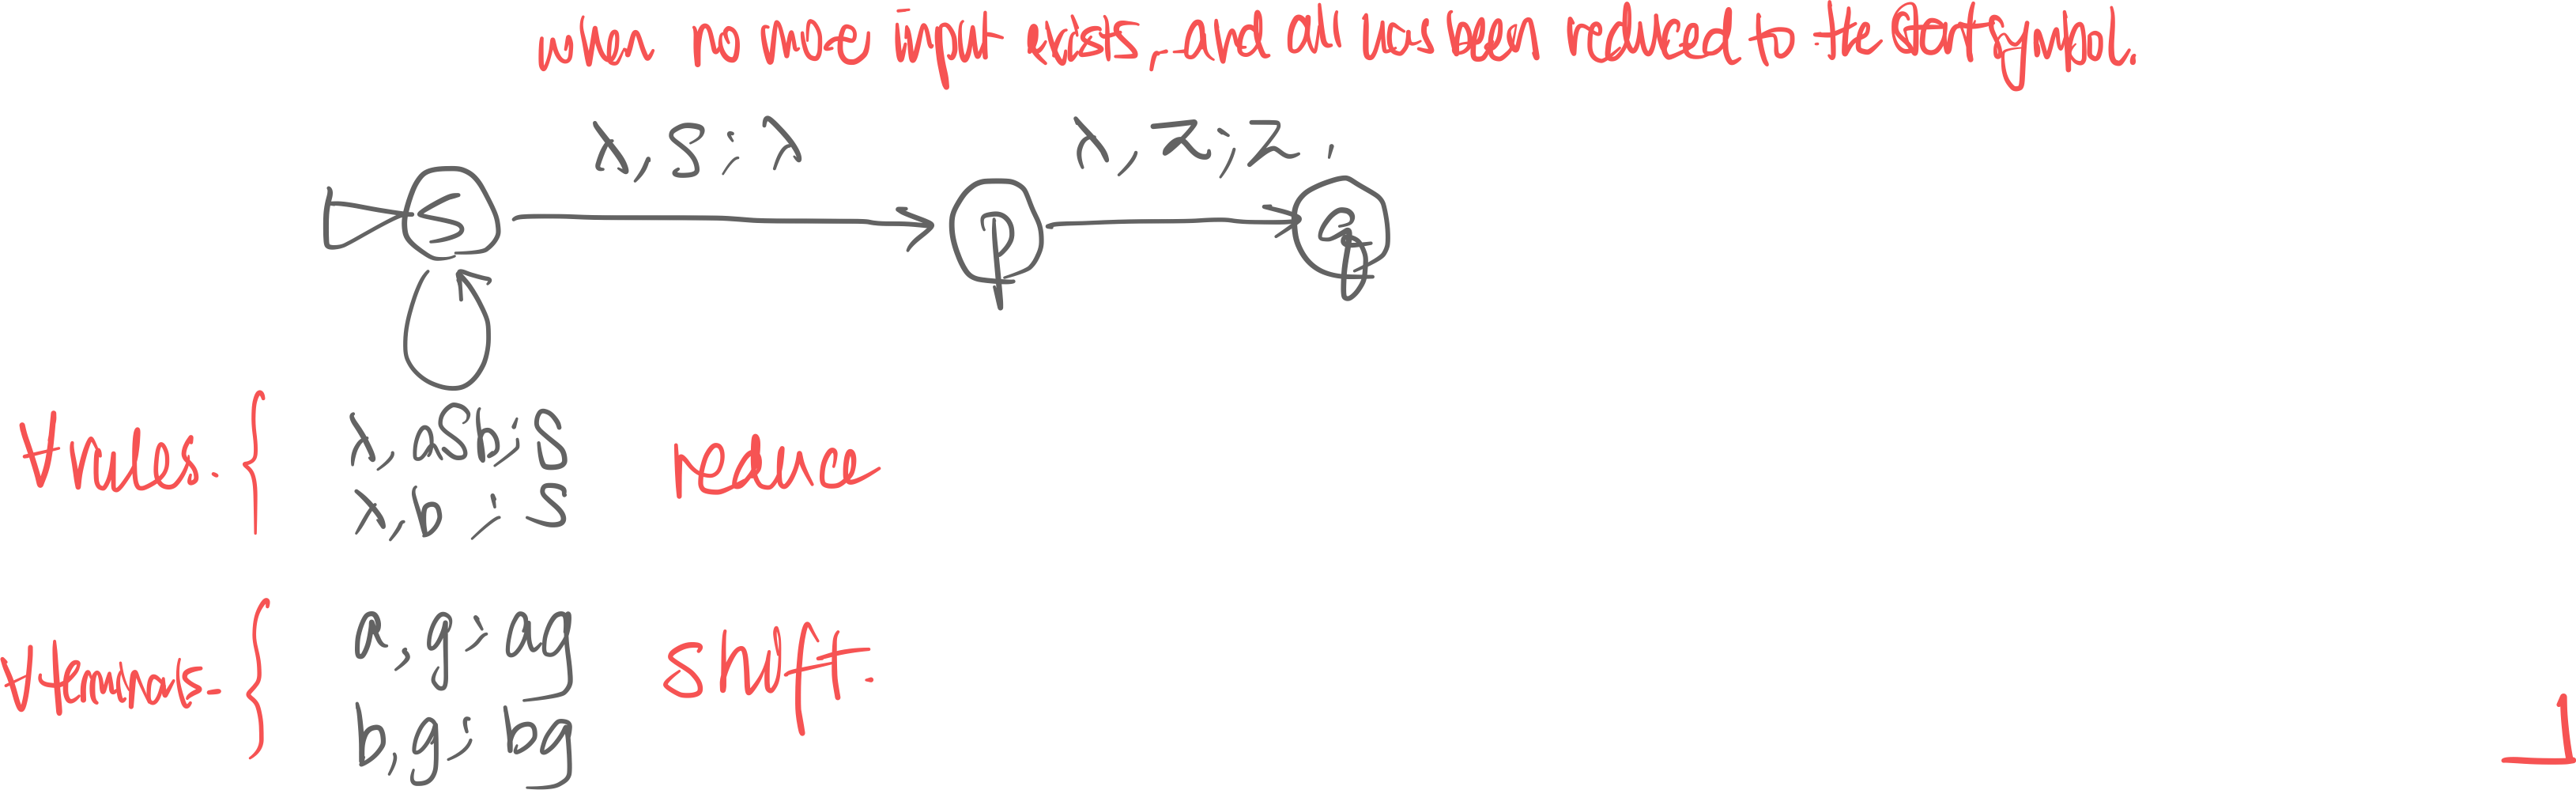 when no more input exists, and all has been reduced to the start symbol.
λ, S; λ
λ, z; z,
S
p
q
∀rules.
λ, aSb; S
reduce
λ, b ; S
∀terminals.
a, g; ag
shift.
b, g; bg